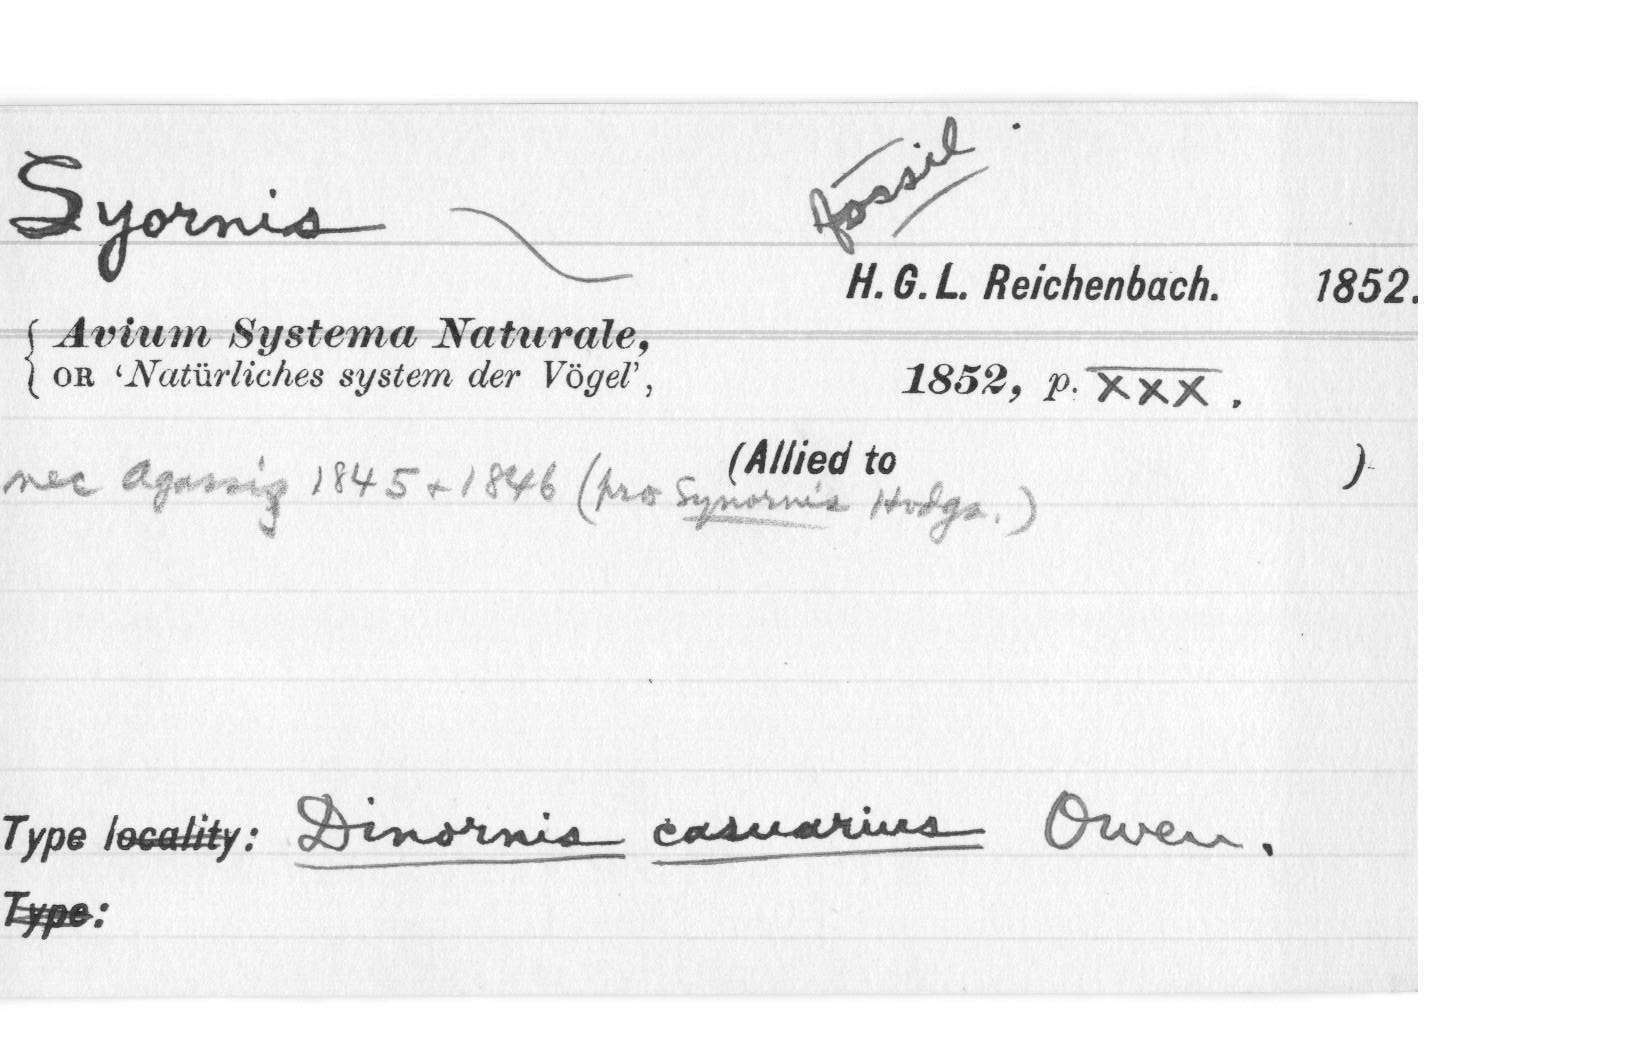 Syornis
fossil
H. G. L. Reichenbach. 1852.
{ Avium Systema Naturale,
{ OR ‘Natürliches system der Vögel’, 1852, p. XXX .
(Allied to )
nec Agassiz 1845 + 1846 (pro Synornis Hodgs.)
Type locality: Dinornis casuarius Owen.
Type: